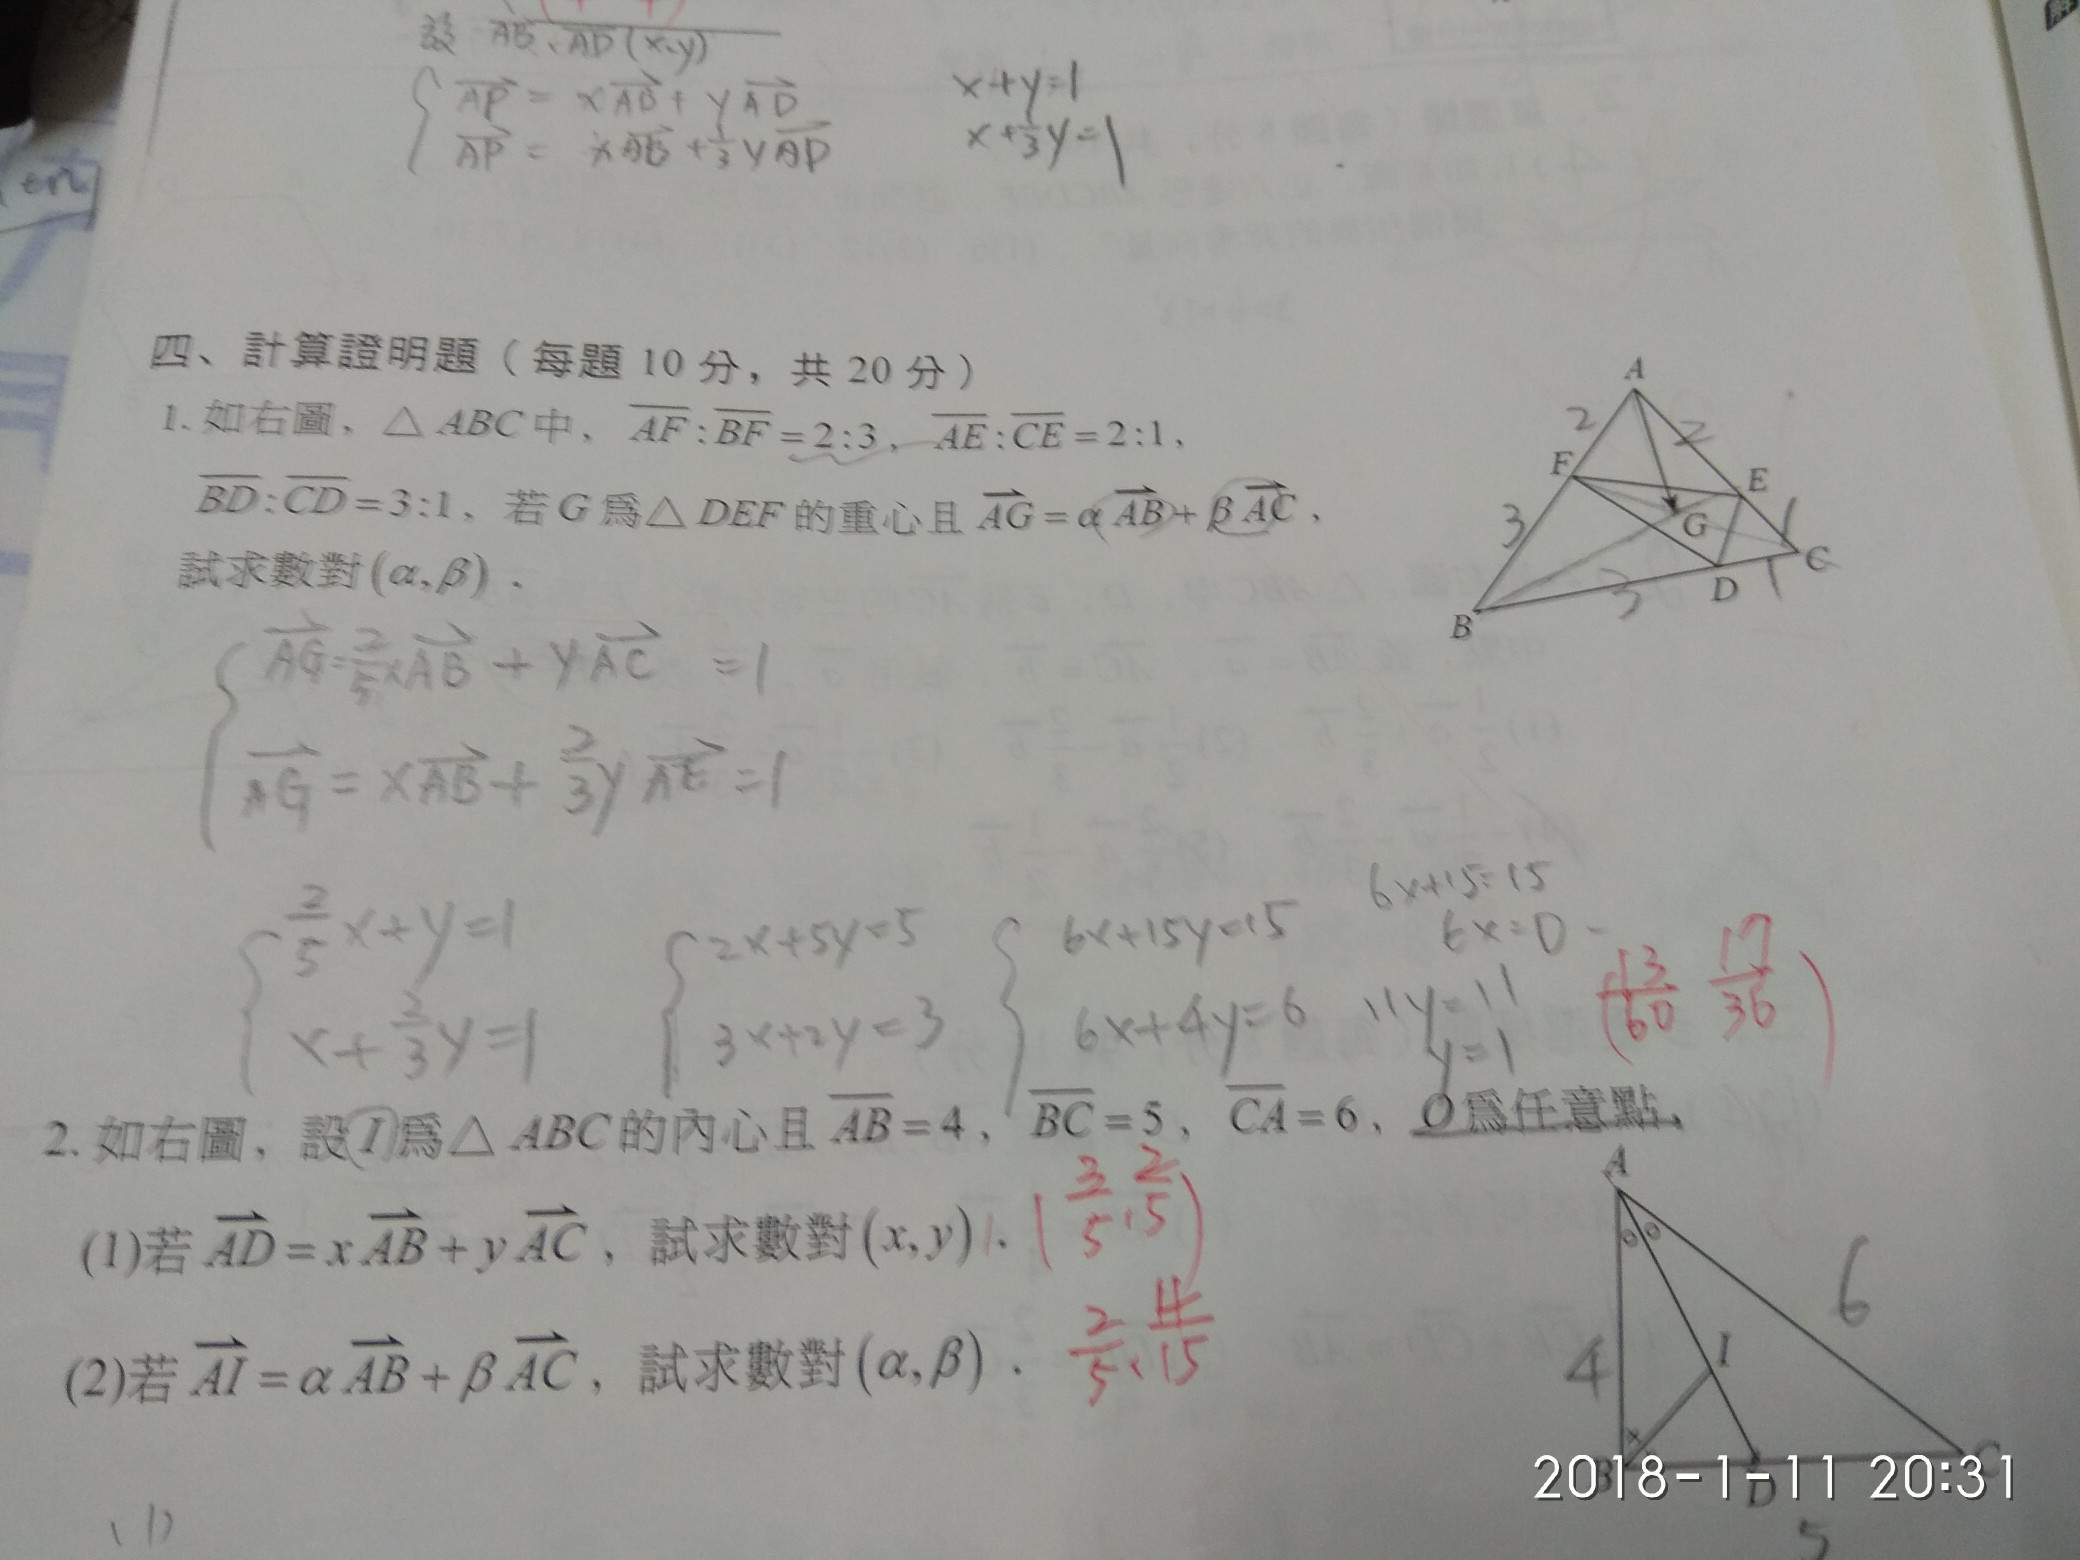 設 AB、AD(x、y)
AP = xAB + yAD
x+y=1
AP = xAB + 1/3 yAD
x+1/3y=1
四、計算證明題（每題 10 分，共 20 分）
1. 如右圖，△ABC 中，AF:BF=2:3，AE:CE=2:1，
BD:CD=3:1，若 G 為△DEF 的重心且 AG=αAB+βAC，
試求數對(α,β)．
A
2
2
F
E
3
G
1
C
D
1
B
3
AG=2/5xAB + yAC =1
AG = xAB + 2/3y AE =1
2/5x+y=1
x+2/3y=1
2x+5y=5
3x+2y=3
6x+15y=15
6x+4y=6
6x+15=15
6x=0
11y=11
y=1
(13/60 17/36)
2. 如右圖，設 I 為△ABC 的內心且 AB=4，BC=5，CA=6，O 為任意點，
(1)若 AD=xAB+yAC，試求數對(x,y)．(3/5,2/5)
(2)若 AI=αAB+βAC，試求數對(α,β)．2/5、4/15
A
6
4
I
B
D
C
5
2018-1-11 20:31
(1)